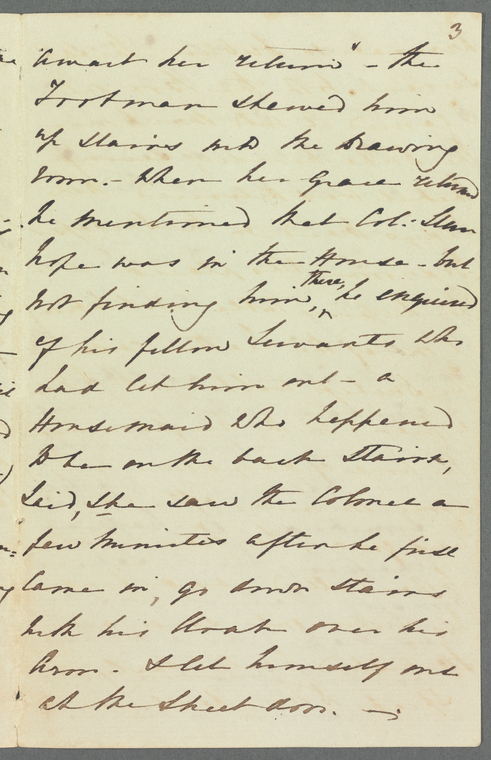 3
await her return" - the
Footman shewed him
up stairs into the Drawing
room. - When her Grace returned
he mentioned that Col: Stan
hope was in the House - but
not finding him there, he enquired
of his fellow Servants who
had let him out - a
Housemaid who happened
to be on the back stairs,
said, she saw the Colonel a
few minutes after he first
came in, go down stairs
with his Cloak over his
Arm. & let himself out
at the Street door. -